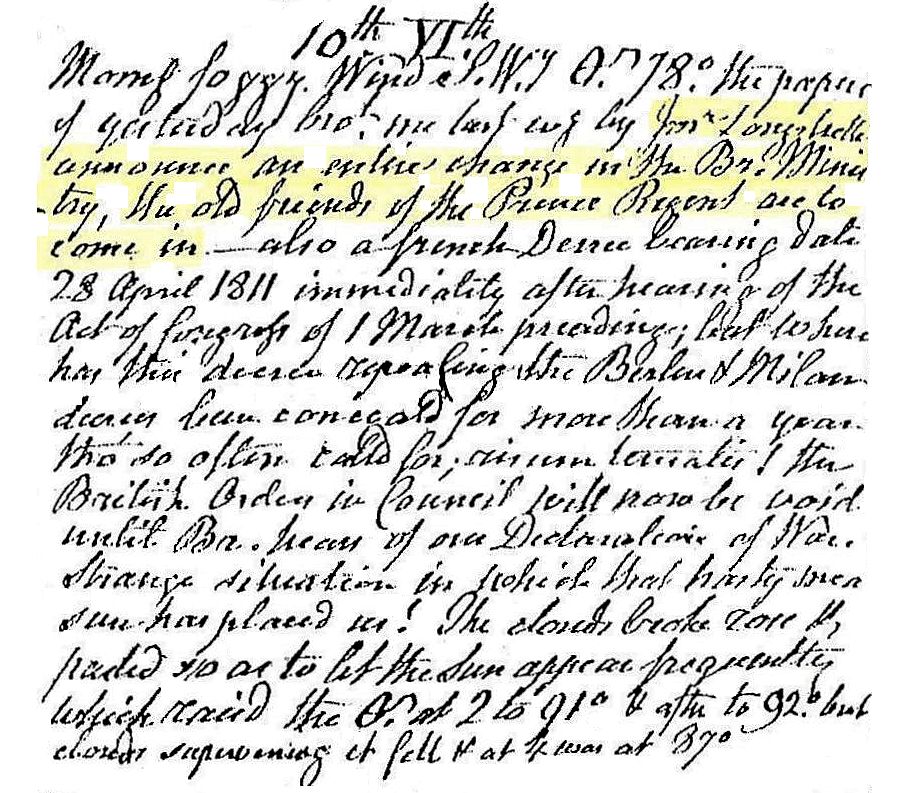 10th VIth
Morng foggy. Wind S.W.y 78° the papers
of yesterday bro.t me last evg by Jon.n Longstreth
announce an entire change in the Br. Minis
try, the old friends of the Prince Regent are to
come in — also a french Decree bearing date
28 April 1811 immediately after hearing of the
Act of Congress of 1 March preceding; but where
has this decree repealing the Berlin & Milan
decrees been conceald for more than a year
tho' so often calld for; risum teneatis! the
British Orders in Council will now be void
until Br. hears of our Declaration of War.
Strange situation in which that hasty mea
sure has placed us! The clouds broke rose &
parted so as to let the Sun appear frequently
which raised the at 2 to 91° & after to 92° but
clouds supervening it fell & at was at 87°